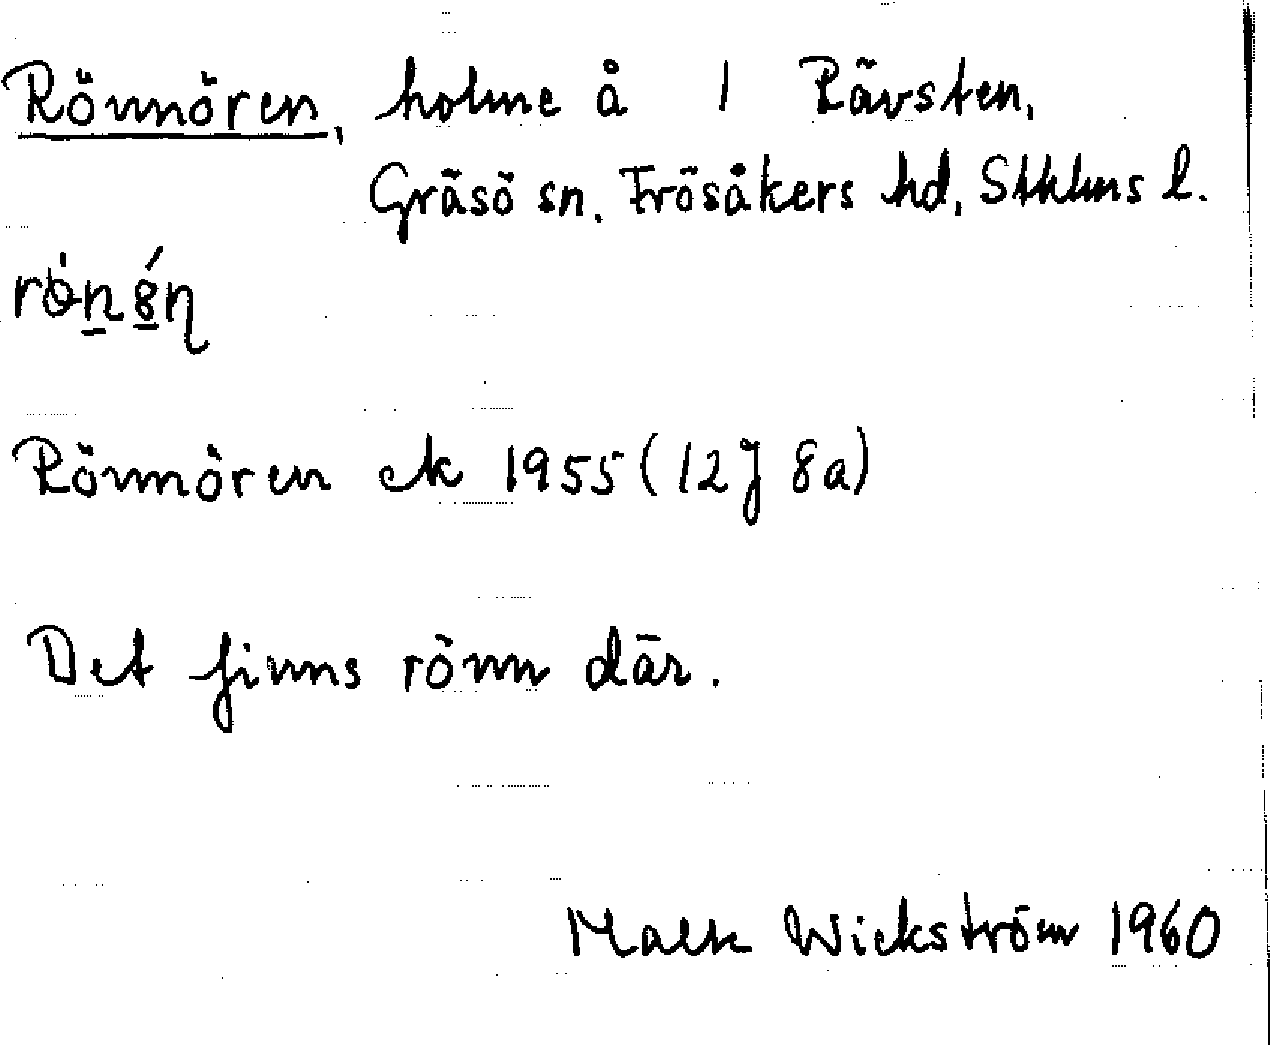 Rönnören, holme å 1 Rävsten,
Gräsö sn. Frösåkers hd, Sthlms l.
Rönnören ek 1955 (12J 8a)
Det finns rönn där.
Wickström 1960